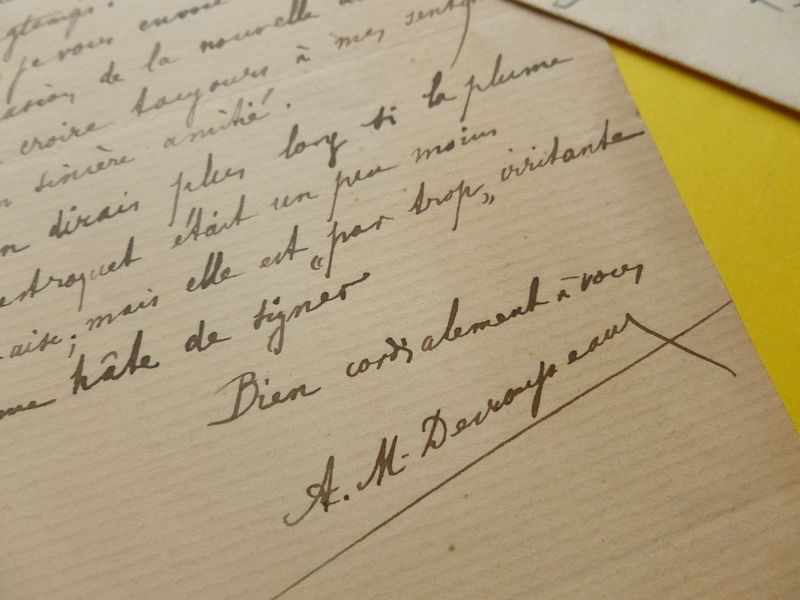 gtemps.
je vous envoie
asion de la nouvelle a
croire toujours à mes senti
n sincère amitié.
n dirais plus long si la plume
estroquet était un peu moins
aise; mais elle est „par trop„ irritante
me hâte de signer
Bien cordialement à vous
A. M. Desrousseaux